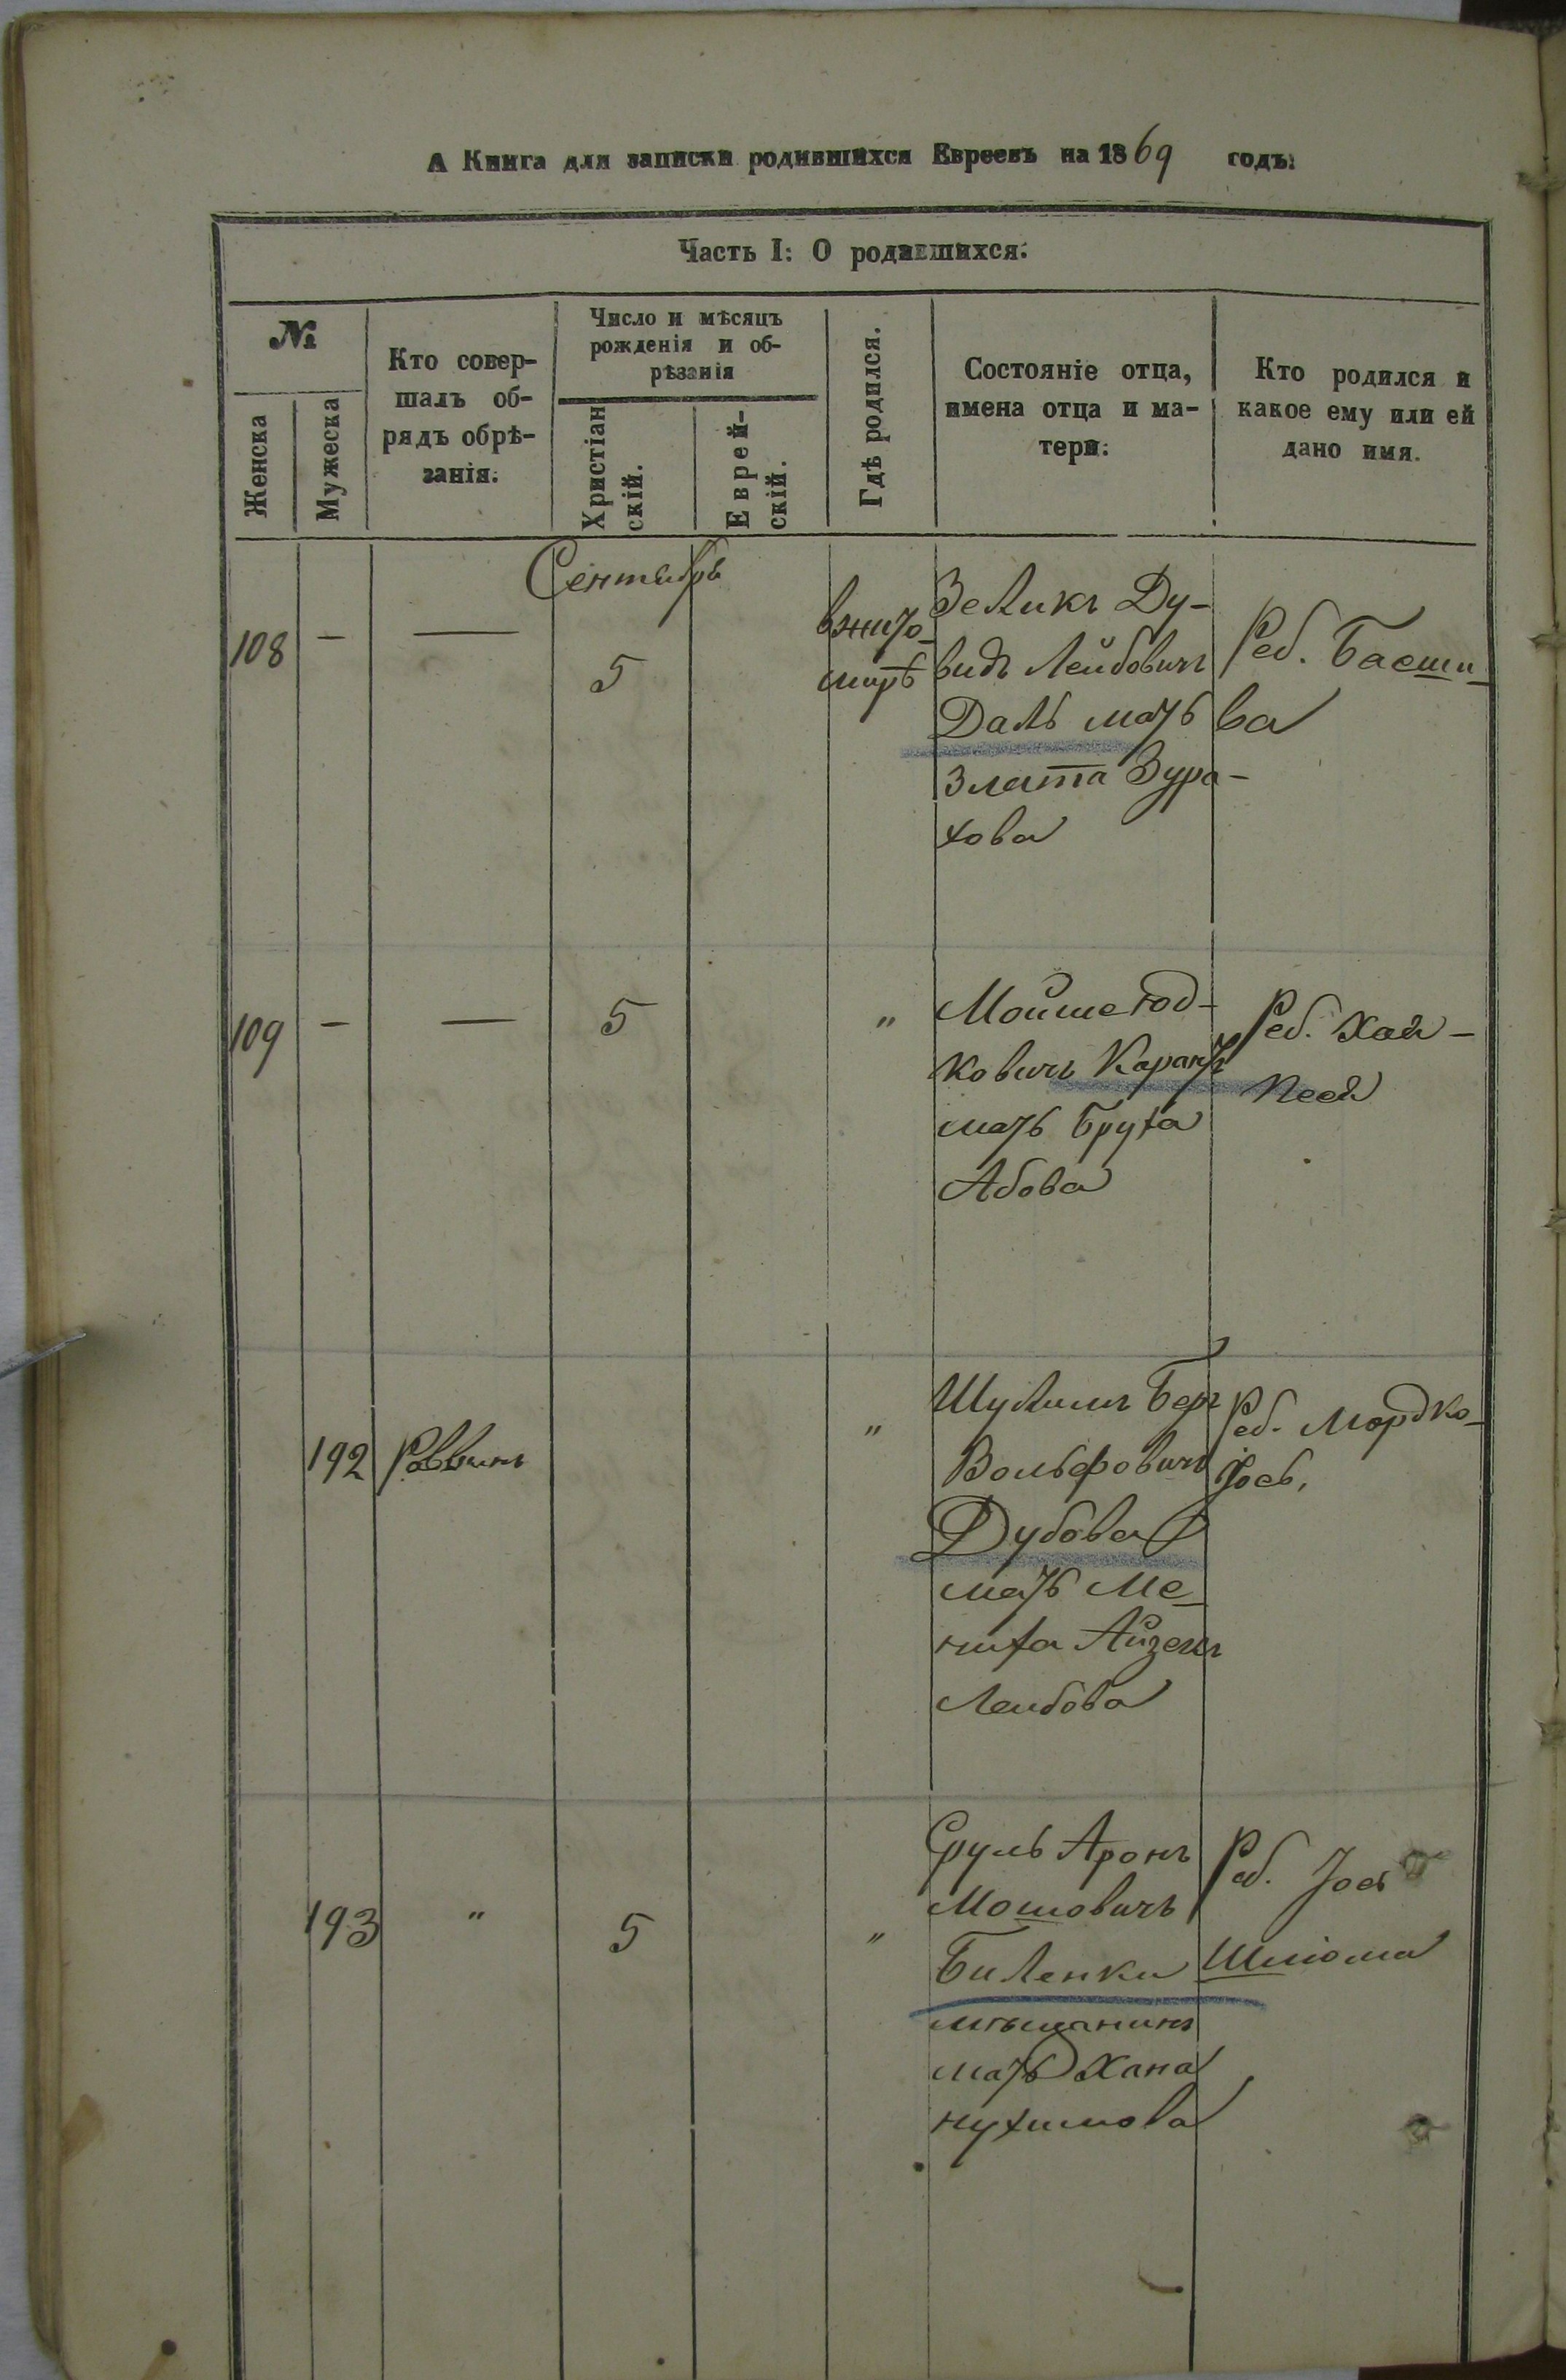 А Книга для записки родившихся Евреевъ на 1869 годъ:
Часть I: О родившихся.
№
Женска
Мужеска
Кто совер-
шалъ об-
рядъ обрѣ-
занія:
Число и мѣсяцъ
рожденія и об-
рѣзанія
Христіан
скій.
Еврей-
скій.
Гдѣ родился.
Состояніе отца,
имена отца и ма-
тери:
Кто родился и
какое ему или ей
дано имя.
Сентябрь
108 — —
5
вжито-
мирѣ
Зеликъ Ду-
видъ Лейбовичъ
Даль мать
Злата Зура-
хова
Реб. Басши-
ва
109 — — 5 "
Мойше Юд-
ковичъ Карантъ
мать Бруха
Абова
Реб. Хая-
Песя
192 Раввинъ "
Шулимъ Беръ
Вольфовичъ
Дубова
мать Ме-
ниха Айзенъ
Леибова
Реб. Мордко-
Іось.
193 " 5 "
Сруль Аронъ
Мошовичъ
Биленки
мѣщанинъ
мать Хана
нухимова
Реб. Іось
Шліома